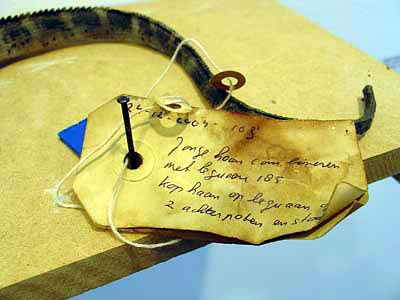 24-12-2004-108
Jonge haan combineren
met leguaan 185
kop haan op leguaan
2 achterpoten en